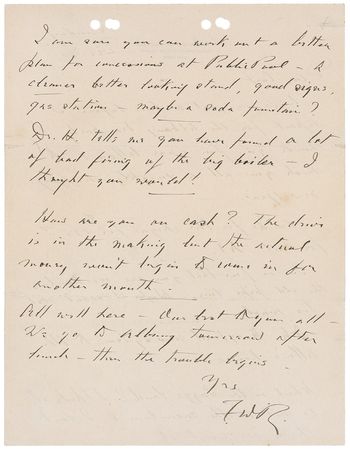 I am sure you can work out a better
plan for concessions at Public Pool – a
cleaner better looking stand, good signs,
gas station – maybe a soda fountain?
Dr. H. tells me you have found a lot
of bad firing of the big boiler – I
thought you would!
How are you on cash? The drive
is in the making but the actual
money won't begin to come in for
another month.
All well here – Our best to you all –
We go to Albany tomorrow after
lunch – then the trouble begins
Yrs
FDR.